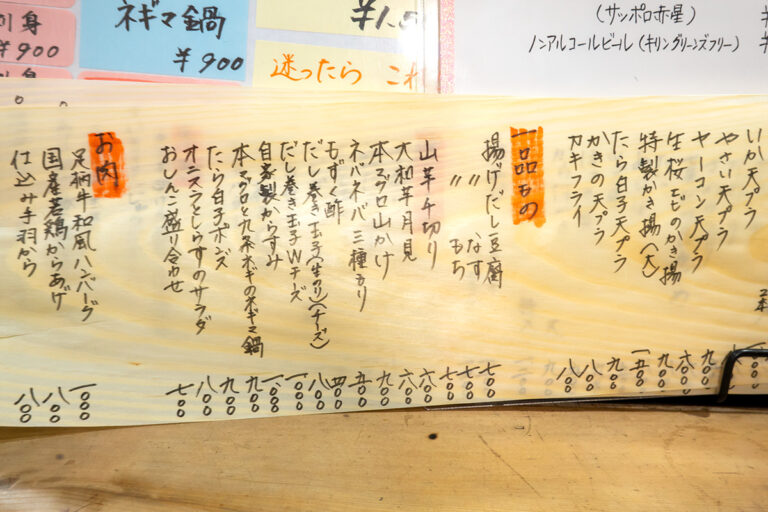 刺身
¥900
刺身
ネギマ鍋
¥900
¥1.0
迷ったら これ
(サッポロ赤星)
ノンアルコールビール(キリングリーンズフリー)
¥
¥
いか天プラ
やさい天プラ
ヤーコン天プラ 九〇〇
生桜エビのかき揚 六〇〇
特製かき揚(大) 九〇〇
たら白子天プラ 一五〇〇
かきの天プラ 九〇〇
カキフライ 八〇〇
八〇〇
一品もの
揚げだし豆腐 七〇〇
〃 なす 七〇〇
〃 もち 七〇〇
山芋千切り 六〇〇
大和芋月見 六〇〇
本マグロ山かけ 九〇〇
ネバネバ三種盛り 五〇〇
もずく酢 四〇〇
だし巻き玉子(生のり)(チーズ) 八〇〇
だし巻き玉子Wチーズ 一〇〇〇
自家製からすみ 一〇〇〇
本マグロと九条ネギのネギマ鍋 九〇〇
たら白子ポンズ 九〇〇
オニスラとしらすのサラダ 八〇〇
おしんこ盛り合わせ 七〇〇
お肉
足柄牛和風ハンバーグ 一〇〇〇
国産若鶏からあげ 八〇〇
仕込み手羽から 八〇〇